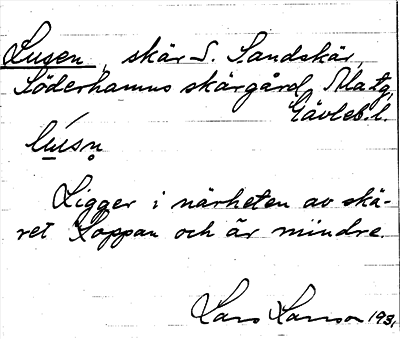 Lusen, skär S. Sandskär,
Söderhamns skärgård,
Gävleb.l.
lúsṇ
Ligger i närheten av skä-
ret Loppan och är mindre.
Lars Larson 193